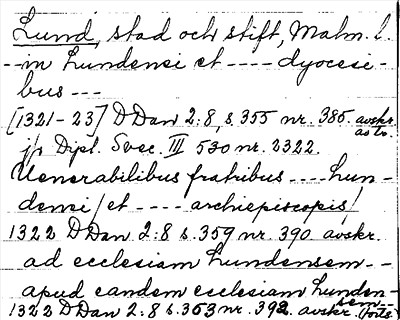 Lund, stad och stift, Malm. l.
--in Lundensi et ---- dyocesi-
bus ---
[1321-23] DDan 2:8, s. 355 nr. 385. avskr.
jfr Dipl. Svec. III 530 nr. 2322.
Venerabilibus fratribus ---- Lun-
densi /et ---- archiepiscopis/
1322 DDan 2:8 s. 359 nr. 390. avskr.
ad ecclesiam Lundensem --
apud eandem ecclesiam Lunden-
sem --
1322 DDan 2:8 s. 353 nr. 392. avskr. (forts.